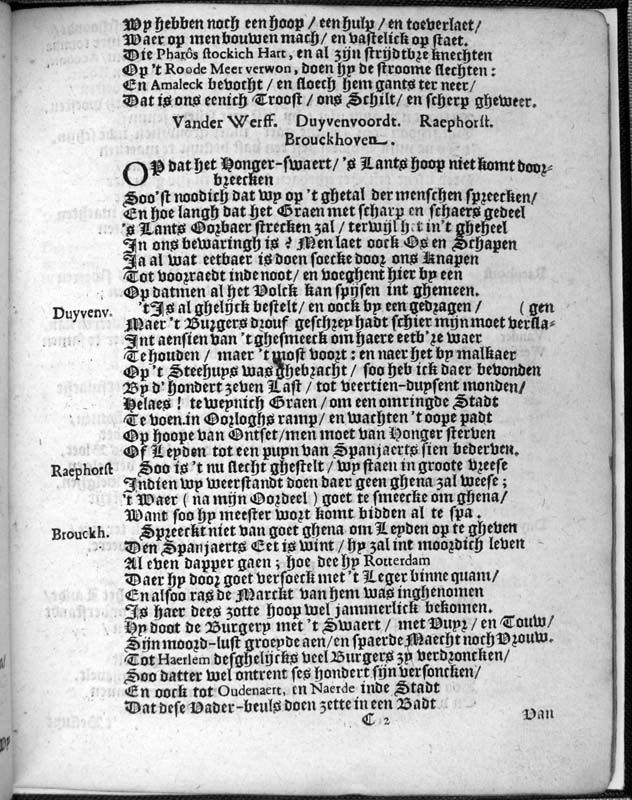 Wy hebben noch een hoop / een hulp / en toeverlaet /
Waer op men bouwen mach / en vastelick op staet.
Die Pharôs stockich Hart, en al zijn strijdtbre knechten
Op 't Roode Meer verwon, doen hy de stroome slechten:
En Amaleck bevocht / en sloech hem gants ter neer /
Dat is ons eenich Troost / ons Schilt / en scherp gheweer.
Vander Werff. Duyvenvoordt. Raephorst.
Brouckhoven.
OP dat het Honger-swaert / 's Lants hoop niet komt door-
breecken
Soo'st noodich dat wy op 't ghetal der menschen spreecken /
En hoe langh dat het Graen met scharp en schaers gedeel
's Lants Oorbaer strecken zal / terwijl het in't gheheel
In ons bewaringh is ? Men laet oock Os en Schapen
Ja al wat eetbaer is doen soecke door ons Knapen
Tot voorraedt inde noot / en voeghent hier by een
Op datmen al het Volck kan spijsen int ghemeen.
Duyvenv. 't Is al ghelijck bestelt / en oock by een gedragen / (gen
Maer 't Burgers drouf geschrey hadt schier mijn moet versla-
Int aensien van 't ghesmeeck om haere eetb're waer
Te houden / maer 't most voort: en naer het by malkaer
Op 't Steehuys was ghebracht / soo heb ick daer bevonden
By d' hondert zeven Last / tot veertien-duysent monden /
Helaes ! te weynich Graen / om een omringde Stadt
Te voen in Oorloghs ramp / en wachten 't oope padt
Op hoope van Ontset / men moet van Honger sterven
Of Leyden tot een puyn van Spanjaerts sien bederven.
Raephorst Soo is 't nu slecht ghestelt / wy staen in groote vreese
Indien wy weerstandt doen daer geen ghena zal weese ;
't Waer ( na mijn Oordeel ) goet te smeecke om ghena /
Want soo hy meester wort komt bidden al te spa .
Brouckh. Spreeckt niet van goet ghena om Leyden op te gheven
Den Spanjaerts Eet is wint / hy zal int moordich leven
Al even dapper gaen ; hoe dee hy Rotterdam
Daer hy door goet versoeck met 't Leger binne quam /
En alsoo ras de Marckt van hem was inghenomen
Is haer dees zotte hoop wel jammerlick bekomen.
Hy doot de Burgery met 't Swaert / met Vuyr / en Touw /
Sijn moord-lust groeyde aen / en spaerde Maecht noch Vrouw.
Tot Haerlem desghelijcks veel Burgers zy verdroncken /
Soo datter wel ontrent ses hondert sijn versoncken /
En oock tot Oudenaert, en Naerde inde Stadt
Dat dese Vader-beuls doen zette in een Badt
C 2 Van